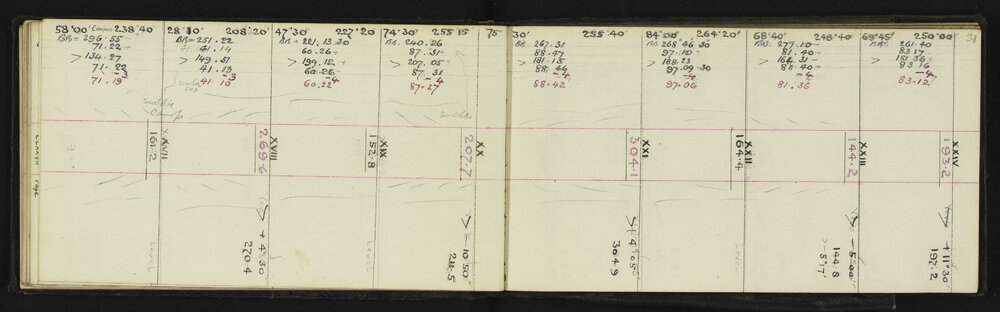 58°00' Compass 238°40
BB= 296.55
71.22+
> 134.27
71.22
-3
71.19
Saddle
Camp
161.2
XVII
LEVEL
28°10' 208°20'
BB= 251.22
41.14
> 149.51
41.13
-3
41.10
269.6
XVIII
+4°30
270.4
47°30' 227°20
BB= 221.13.30
60.26+
> 199.12+
60.26-
-4
60.22
152.8
XIX
LEVEL
74°30' 253°15
BB. 240.26
87.31-
> 207.05-
87.31
-4
87.27
Saddle
207.7
XX
-10°50'
211.5
75°
30' 255°40
BB. 267.31
88.47
> 181.15
88.46
-4
88.42
304.1
XXI
+4°05'
304.9
84°00' 264°20'
BB 268.46.30
97.10-
> 188.23
97.09.30
-4
97.06
164.4
XXII
LEVEL
68°40' 248°40
BB. 277.10-
81.40-
> 164.31-
81.40-
-4
81.36
144.2
XXIII
-5°00'
144.8
5°17'
69°45' 250°00'
31
BB. 261.40
83.17
> 181.36+
83.16
-4
83.12
193.2
XXIV
+11°30'
197.2